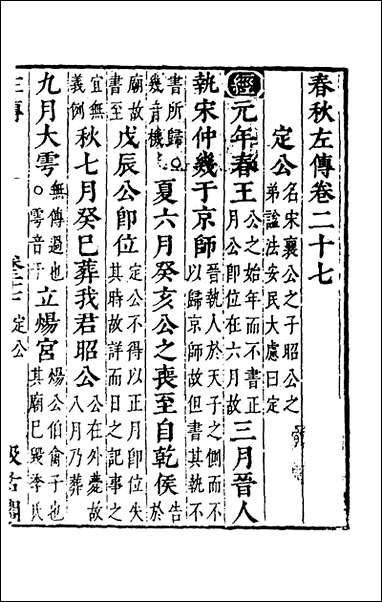 春秋左傳卷二十七
定公名宋襄公之子昭公之弟諡法安民大慮曰定
經元年春王公之始年而不書正月公即位在六月故三月晉人
執宋仲幾于京師晉執人於天子之側而不以歸京師故但書其執不
書所歸○幾音機夏六月癸亥公之喪至自乾侯告於
廟故書至戊辰公即位定公不得以正月即位失其時故詳而日之記事之
宜無義例秋七月癸巳葬我君昭公公在外薨故八月乃葬
九月大雩無傳過也○雩音于立煬宮煬公伯禽子也其廟已毀季氏
定公
汲古閣